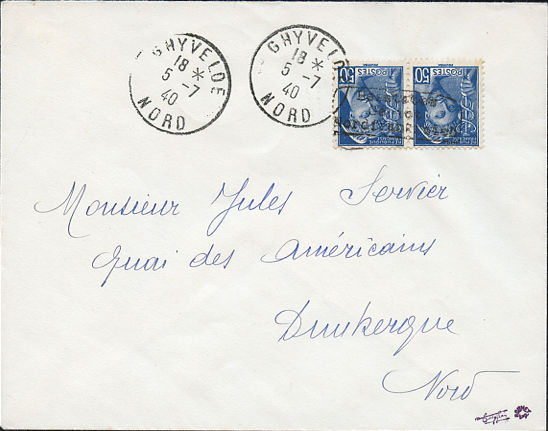 GHYVELDE
18 *
5 -7
40
NORD
GHYVELDE
18 *
5 -7
40
NORD
50
POSTES
50
POSTES
Monsieur Jules Servier
Quai des Américains
Dunkerque
Nord